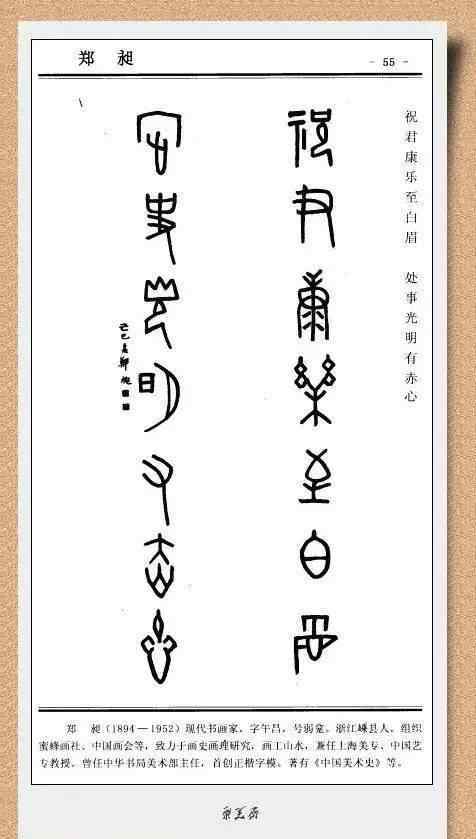 郑 昶
- 55 -
祝君康乐至白眉 处事光明有赤心
祝君康乐至白眉
处事光明有赤心
郑 昶(1894—1952)现代书画家,字午昌,号弱龛。浙江嵊县人、组织
蜜蜂画社、中国画会等,致力于画史画理研究,画工山水,兼任上海美专、中国艺
专教授、曾任中华书局美术部主任,首创正楷字模。著有《中国美术史》等。